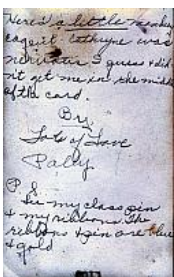 Here's a little monkey
Cathryne was
I guess & did
n't get me in the middle
of the card.
By
Lots of Love
Patsy
P.S.
See my class pin
& my ribbons. The
ribbons & pin are blue
& gold